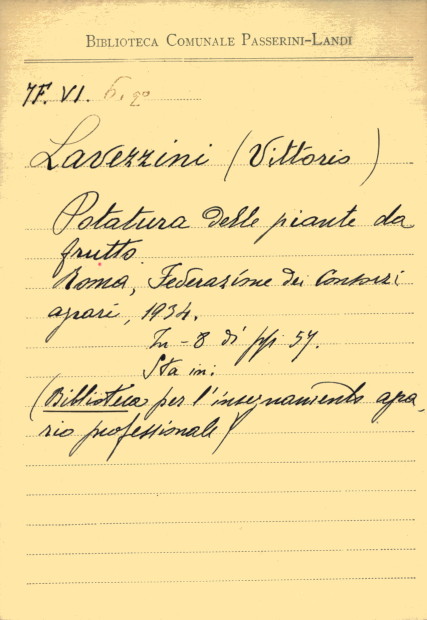 BIBLIOTECA COMUNALE PASSERINI-LANDI
7F. VI. 6. 20
Lavezzini (Vittorio)
Potatura delle piante da
frutto.
Roma, Federazione dei Consorzi
agrari, 1934.
In-8 di pp. 57.
Sta in:
(Biblioteca per l'insegnamento agra-
rio professionale)